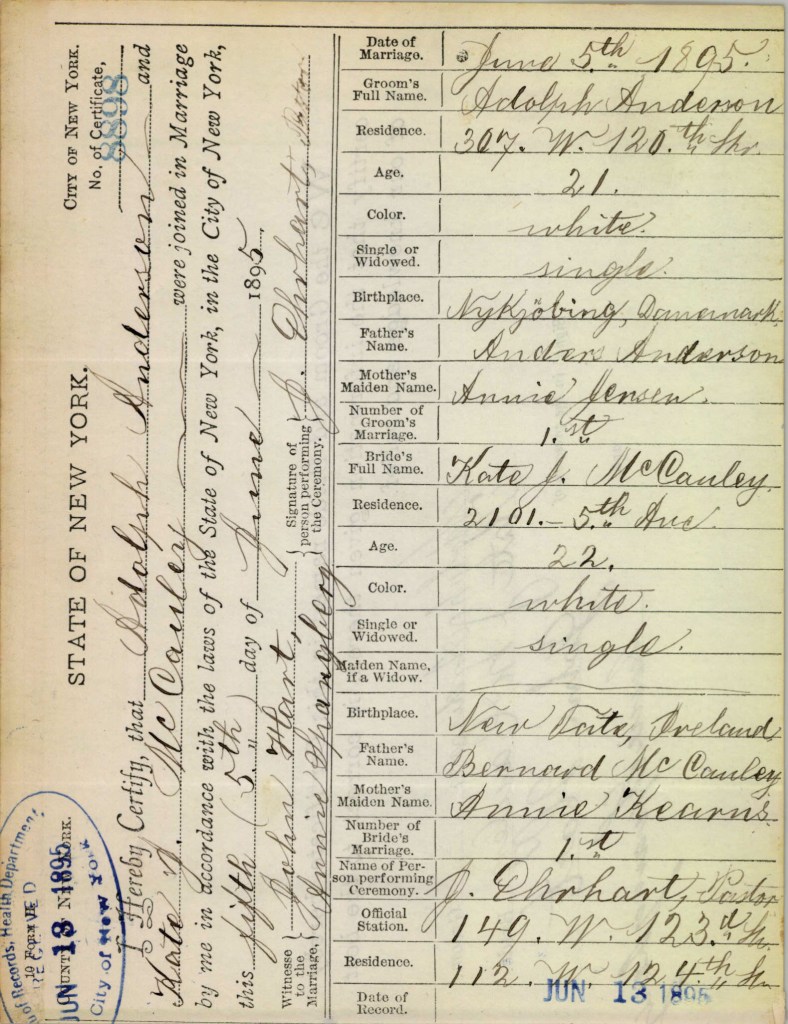 STATE OF NEW YORK.
COUNTY NEW YORK.
CITY OF NEW YORK.
No. of Certificate,
8898
I Hereby Certify, that Adolph Anderson and
Kate J. McCauley were joined in Marriage
by me in accordance with the laws of the State of New York, in the City of New York,
this fifth (5th) day of June 1895.
Witnesse to the Marriage,
John Hart,
Annie Spangberg
Signature of person performing the Ceremony.
J. Ehrhart, Pastor
of Records, Health Department
JUN 13 1895
City of New York
Date of Marriage. June 5th 1895.
Groom's Full Name. Adolph Anderson
Residence. 307. W. 120.th Str.
Age. 21.
Color. white.
Single or Widowed. single.
Birthplace. Nykjöbing, Danemark
Father's Name. Anders Anderson
Mother's Maiden Name. Annie Jensen.
Number of Groom's Marriage. 1.st
Bride's Full Name. Kate J. McCauley.
Residence. 2101.- 5.th Ave.
Age. 22.
Color. white.
Single or Widowed. single.
Maiden Name, if a Widow.
Birthplace. New Tate, Ireland,
Father's Name. Bernard McCauley
Mother's Maiden Name. Annie Kearns.
Number of Bride's Marriage. 1.st
Name of Person performing Ceremony. J. Ehrhart, Pastor
Official Station. 149. W. 123.d Str.
Residence. 112. W. 124.th Str.
Date of Record. JUN 13 1895